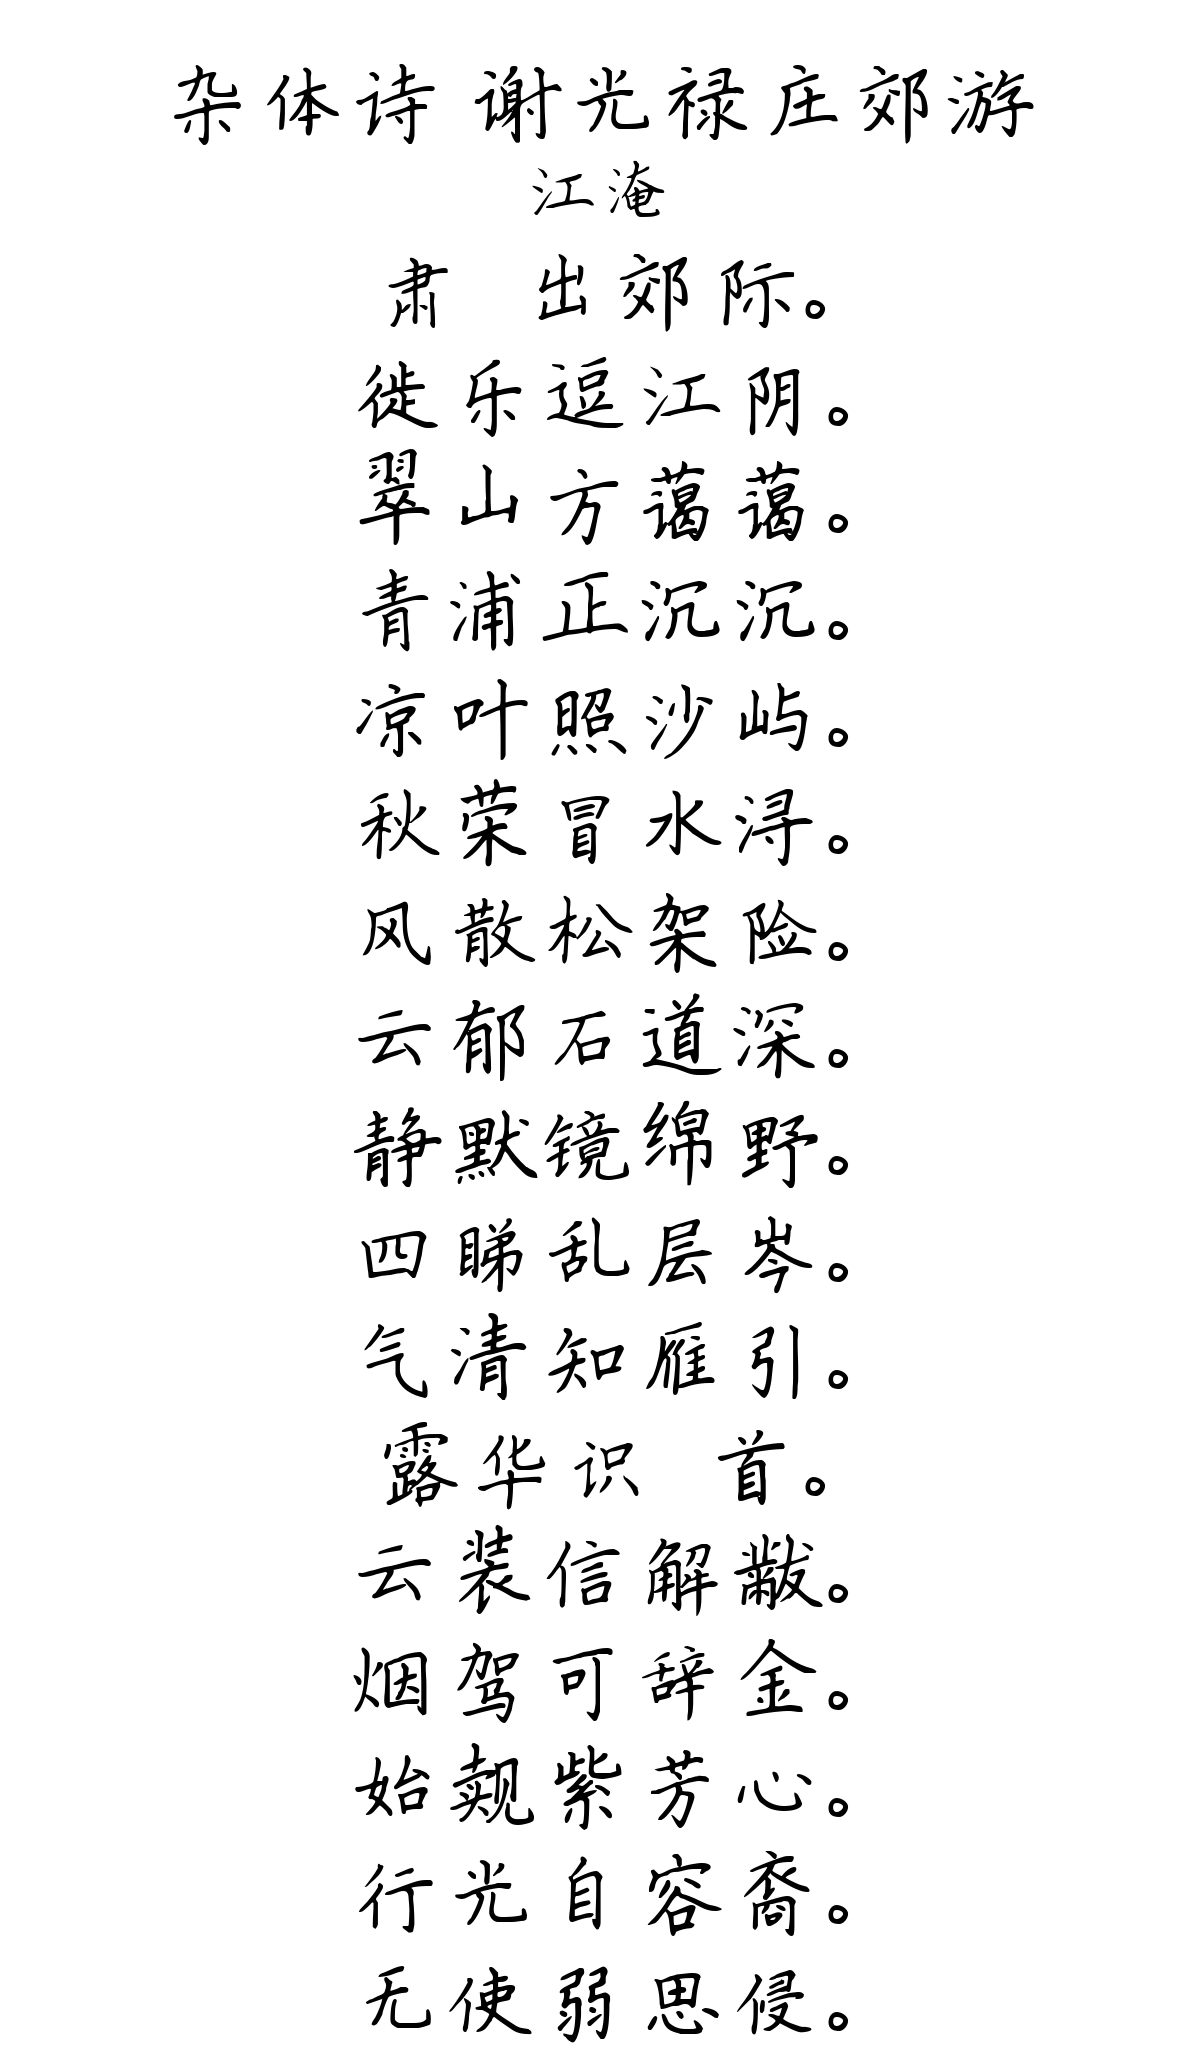 杂体诗 谢光禄庄郊游
江淹
肃 出郊际。
徙乐逗江阴。
翠山方蔼蔼。
青浦正沉沉。
凉叶照沙屿。
秋荣冒水浔。
风散松架险。
云郁石道深。
静默镜绵野。
四睇乱层岑。
气清知雁引。
露华识 首。
云装信解黻。
烟驾可辞金。
始觌紫芳心。
行光自容裔。
无使弱思侵。